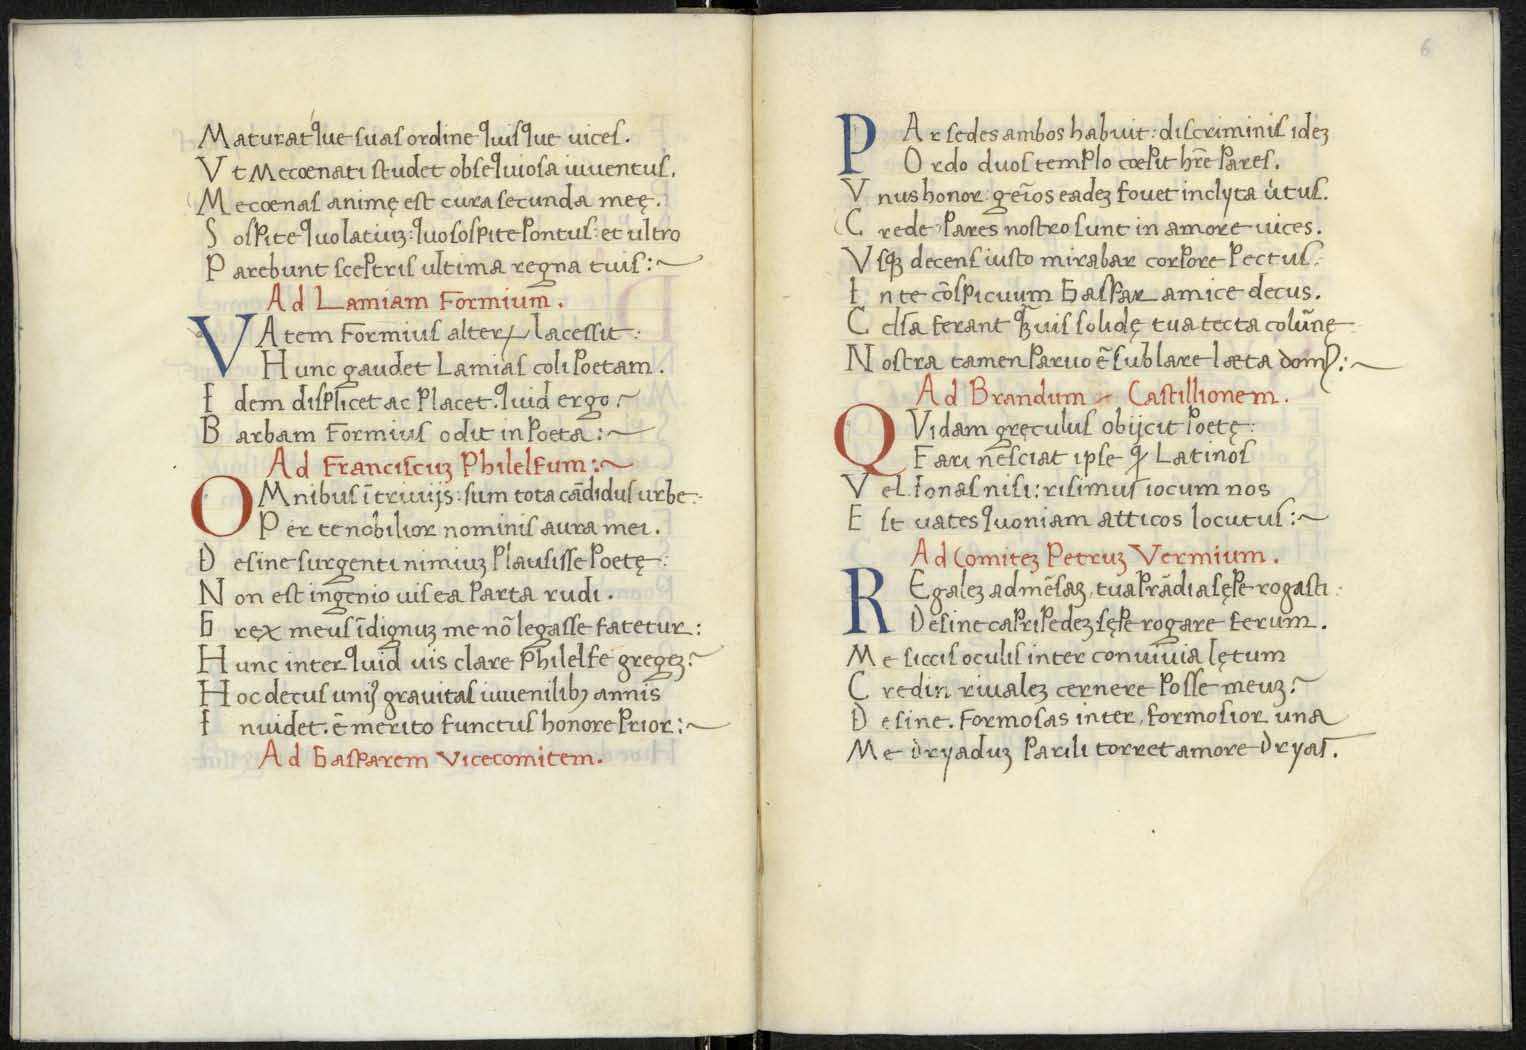 Maturatque suas ordine quisque uices.
Vt Mecœnati studet obsequiosa iuuentus.
Mecœnas animę est cura secunda meę.
Sospite quo latiuꝫ: quo sospite Pontus: et ultro
Parebunt sceptris ultima regna tuis:~
Ad Lamiam Formium.
VAtem Formius alter lacessit:
Hunc gaudet Lamias coli Poetam.
Idem displicet ac placet. quid ergo?
Barbam Formius odit in Poeta:~
Ad Franciscuꝫ Philelfum:~
OMnibus ī triuijs: sum tota cādidus urbe:
Per te nobilior nominis aura mei.
Desine surgenti nimiuꝫ plausisse Poetę:
Non est ingenio uis ea parta rudi.
Grex meus īdignuꝫ me nō legasse fatetur:
Hunc inter quid uis clare Philelfe gregeꝫ?
Hoc decus uniꝰ grauitas iuuenilibꝫ annis
Inuidet. ē merito functus honore prior:~
Ad Gasparem Vicecomitem.
6
PAr sedes ambos habuit: discriminis ideꝫ
Ordo duos templo cœpit hr̄e pares.
Vnus honor: gen̄os eadeꝫ fouet inclyta u̇tus.
Crede pares nostro sunt in amore uices.
Vsqꝫ decens iusto mirabar corpore pectus:
In te cōspicuum Gaspar amice decus.
Celsa ferant quis solidę tua tecta colūnę
Nostra tamen paruo ē sub lare læta domꝰ:~
Ad Brandum Castillionem.
QVidam gręculus obijcit Poetę:
Fari nesciat ipse ꝙ Latinos
Vel sonas nisi: risimus iocum nos
Est uates quoniam atticos locutus:~
Ad Comiteꝫ Petruꝫ Vermium.
REgaleꝫ ad mēsaꝫ, tua prādia sępe rogasti:
Desine capripedeꝫ sępe rogare ferum.
Me siccis oculis inter conuiuia lętum
Credin riualeꝫ cernere posse meuꝫ?
Desine. Formosas inter, formosior una
Me dryaduꝫ parili torret amore Dryas.